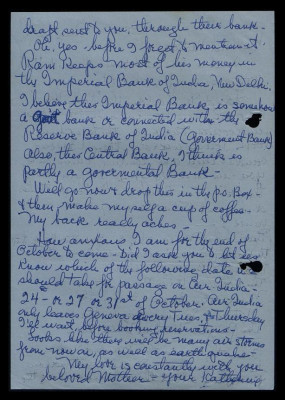 draft sent to you, through their bank.
Oh, yes - before I forget to mention it.
Ram keeps most of his money in
the Imperial Bank of India, New Delhi.
I believe their Imperial Bank, is somehow
a Govt bank or connected with the
Reserve Bank of India (Government Bank)
Also, their Central Bank, I think is
partly a governmental Bank -
Will go now & drop this in the p.o. Box -
& then make myself a cup of coffee -
My back really aches -
How anxious I am for the end of
October to come - Did I ask you to let us
know which of the following dates I
should take for passage on Air India -
24 - or 27 or 31st of October. Air India
only leaves Geneva every Tues, & Thursday
I'll wait, before booking reservations -
Looks like there will be many air storms
from now on, as well as earthquakes -
My love is constantly with you
beloved Mother - your Katherine